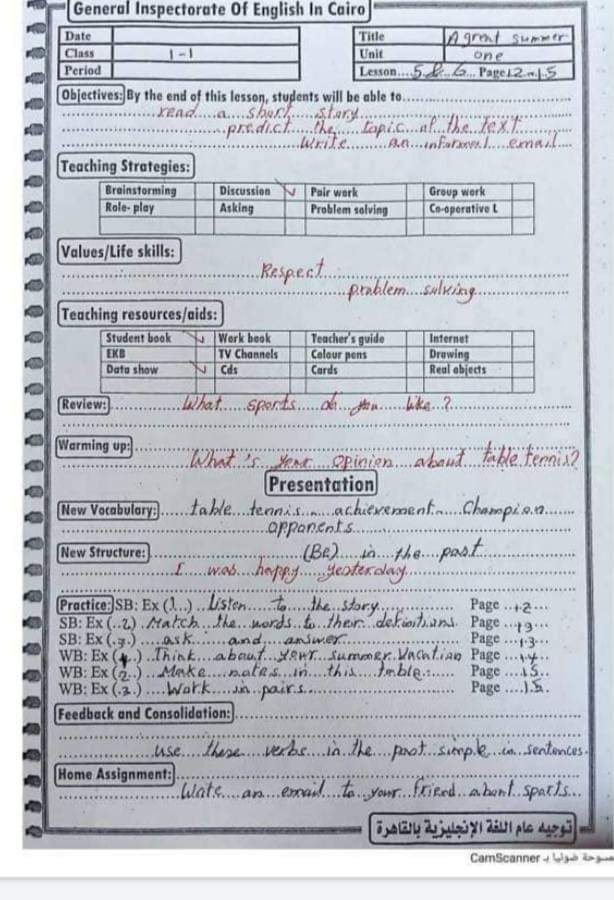 General Inspectorate Of English In Cairo
Date
Title A great summer
Class 1-1
Unit one
Period
Lesson....5 & 6... Page12-15
Objectives: By the end of this lesson, students will be able to
read a short story
predict the topic of the text
write an informal email
Teaching Strategies:
Brainstorming Discussion ✓ Pair work Group work
Role-play Asking Problem solving Co-operative L
Values/Life skills:
Respect
problem solving
Teaching resources/aids:
Student book ✓ Work book Teacher's guide Internet
EKB TV Channels Colour pens Drawing
Data show ✓ Cds Cards Real objects
Review:
What sports do you like ?
Warming up:
What's your opinion about table tennis?
Presentation
New Vocabulary: table tennis achievement Champion
opponents
New Structure: (Be) in the past
I was happy yesterday
Practice: SB: Ex (1) Listen to the story Page 12
SB: Ex (2) Match the words to their definitions Page 13
SB: Ex (3) ask and answer Page 13
WB: Ex (1) Think about your summer Vacation Page 14
WB: Ex (2) Make notes in this table Page 15
WB: Ex (3) Work in pairs Page 15
Feedback and Consolidation:
Use these verbs in the past simple in sentences
Home Assignment:
Write an email to your friend about sports
توجيه عام اللغة الإنجليزية بالقاهرة
ضوئيا بـ CamScanner